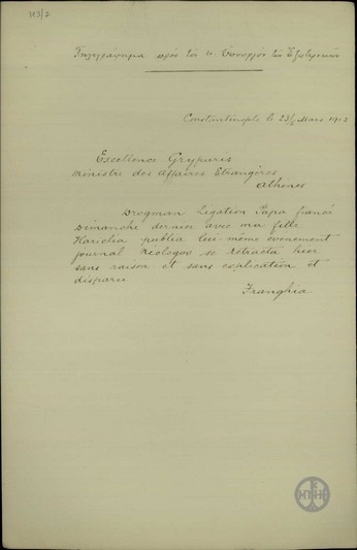 113/2
Τηλεγράφημα πρὸς τὸν κ. Ὑπουργὸν τῶν Ἐξωτερικῶν
Constantinople le 23/ Mars 1912
Excellence Gryparis
Ministre des Affaires Etrangères
Athenes
Drogman Legation Papa fiancé
Dimanche dernier avec ma fille
Hariclia publia lui-même evenement
journal Néologos se retracta hier
sans raison et sans explication et
disparu
Franghia